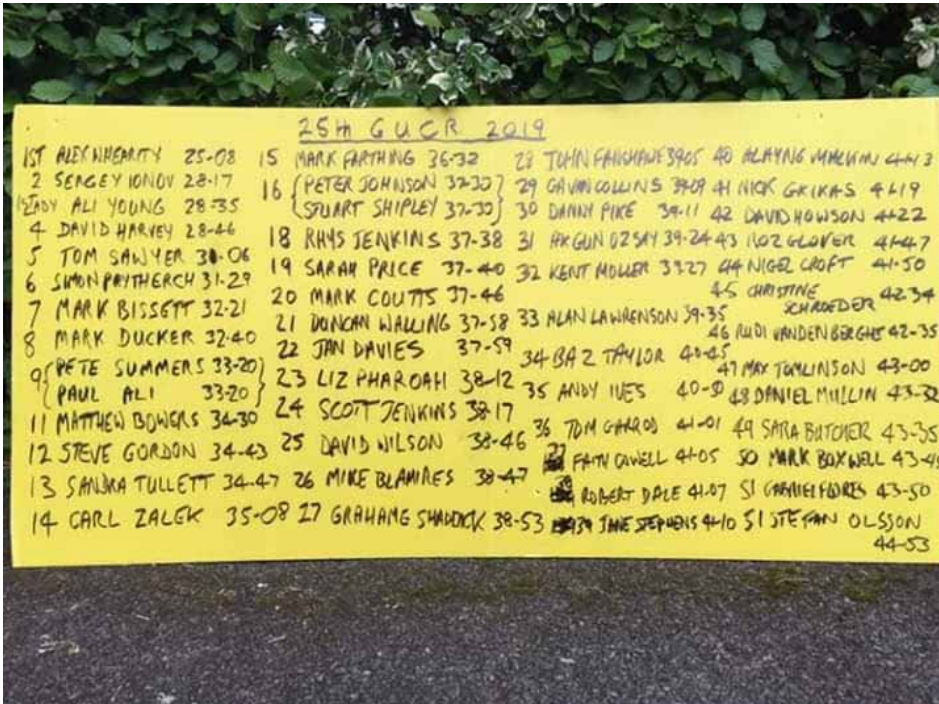 25th GUCR 2019
1ST ALEX WHEARITY 25-08
2 SERGEY IONOV 28-17
1st LADY ALI YOUNG 28-35
4 DAVID HARVEY 28-46
5 TOM SAWYER 30-06
6 SIMON PRYTHERCH 31-29
7 MARK BISSETT 32-21
8 MARK DUCKER 32-40
9 { PETE SUMMERS 33-20 }
PAUL ALI 33-20
11 MATTHEW BOWERS 34-30
12 STEVE GORDON 34-43
13 SANDRA TULLETT 34-47
14 CARL ZALEK 35-08
15 MARK FARTHING 36-32
16 { PETER JOHNSON 37-30 }
STUART SHIPLEY 37-30
18 RHYS JENKINS 37-38
19 SARAH PRICE 37-40
20 MARK COUTTS 37-46
21 DUNCAN WALLING 37-58
22 JAN DAVIES 37-59
23 LIZ PHAROAH 38-12
24 SCOTT JENKINS 38-17
25 DAVID WILSON 38-46
26 MIKE BLAMIRES 38-47
27 GRAHAME SHADDICK 38-53
28 JOHN FANSHAWE 39-05
29 GAVIN COLLINS 39-09
30 DANNY PIKE 39-11
31 AKGUN OZSAY 39-24
32 KENT MOLLER 39-27
33 ALAN LAWRENSON 39-35
34 BAZ TAYLOR 40-45
35 ANDY IVES 40-50
36 TOM GARROD 41-01
37 FAITH COWELL 41-05
ROBERT DALE 41-07
39 JANE STEPHENS 41-10
40 ALAYNE MALKIN 41-13
41 NICK GKIKAS 41-19
42 DAVID HOWSON 41-22
43 ROZ GLOVER 41-47
44 NIGEL CROFT 41-50
45 CHRISTINE
SCHROEDER 42-34
46 RUDI VANDENBERGHE 42-35
47 MAX TOMLINSON 43-00
48 DANIEL MULLIN 43-32
49 SARA BUTCHER 43-35
50 MARK BOXWELL
51 GABRIEL FLORES 43-50
51 STEFAN OLSSON
44-53